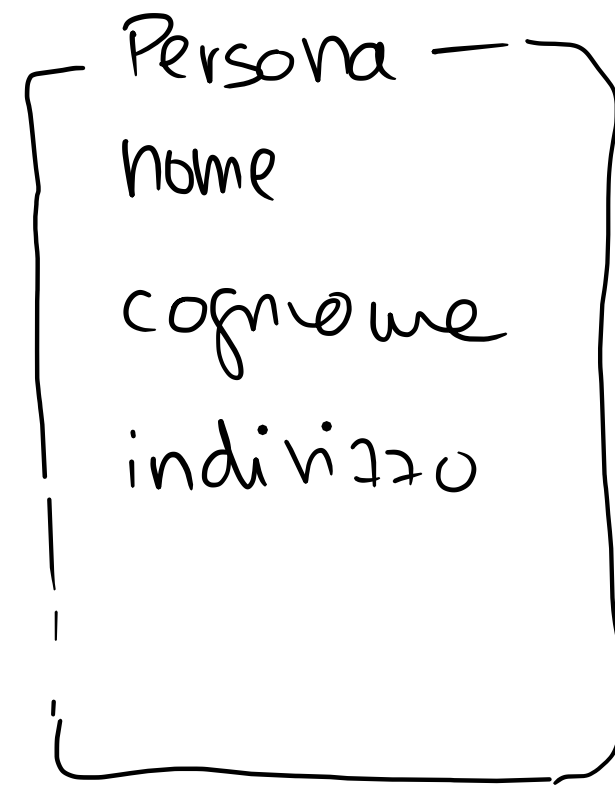 Persona
nome
cognome
indirizzo